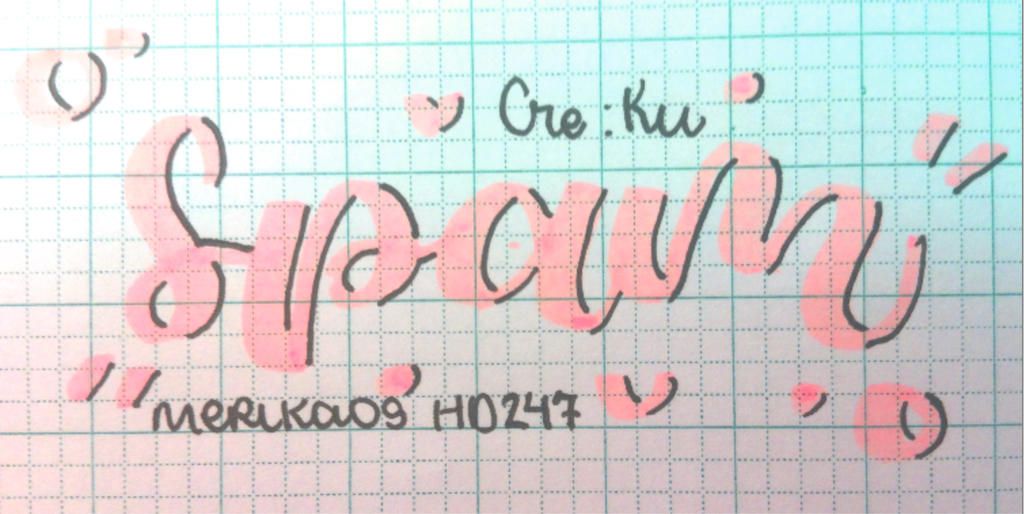 Cre:Ku
Spam
merikaos HD247